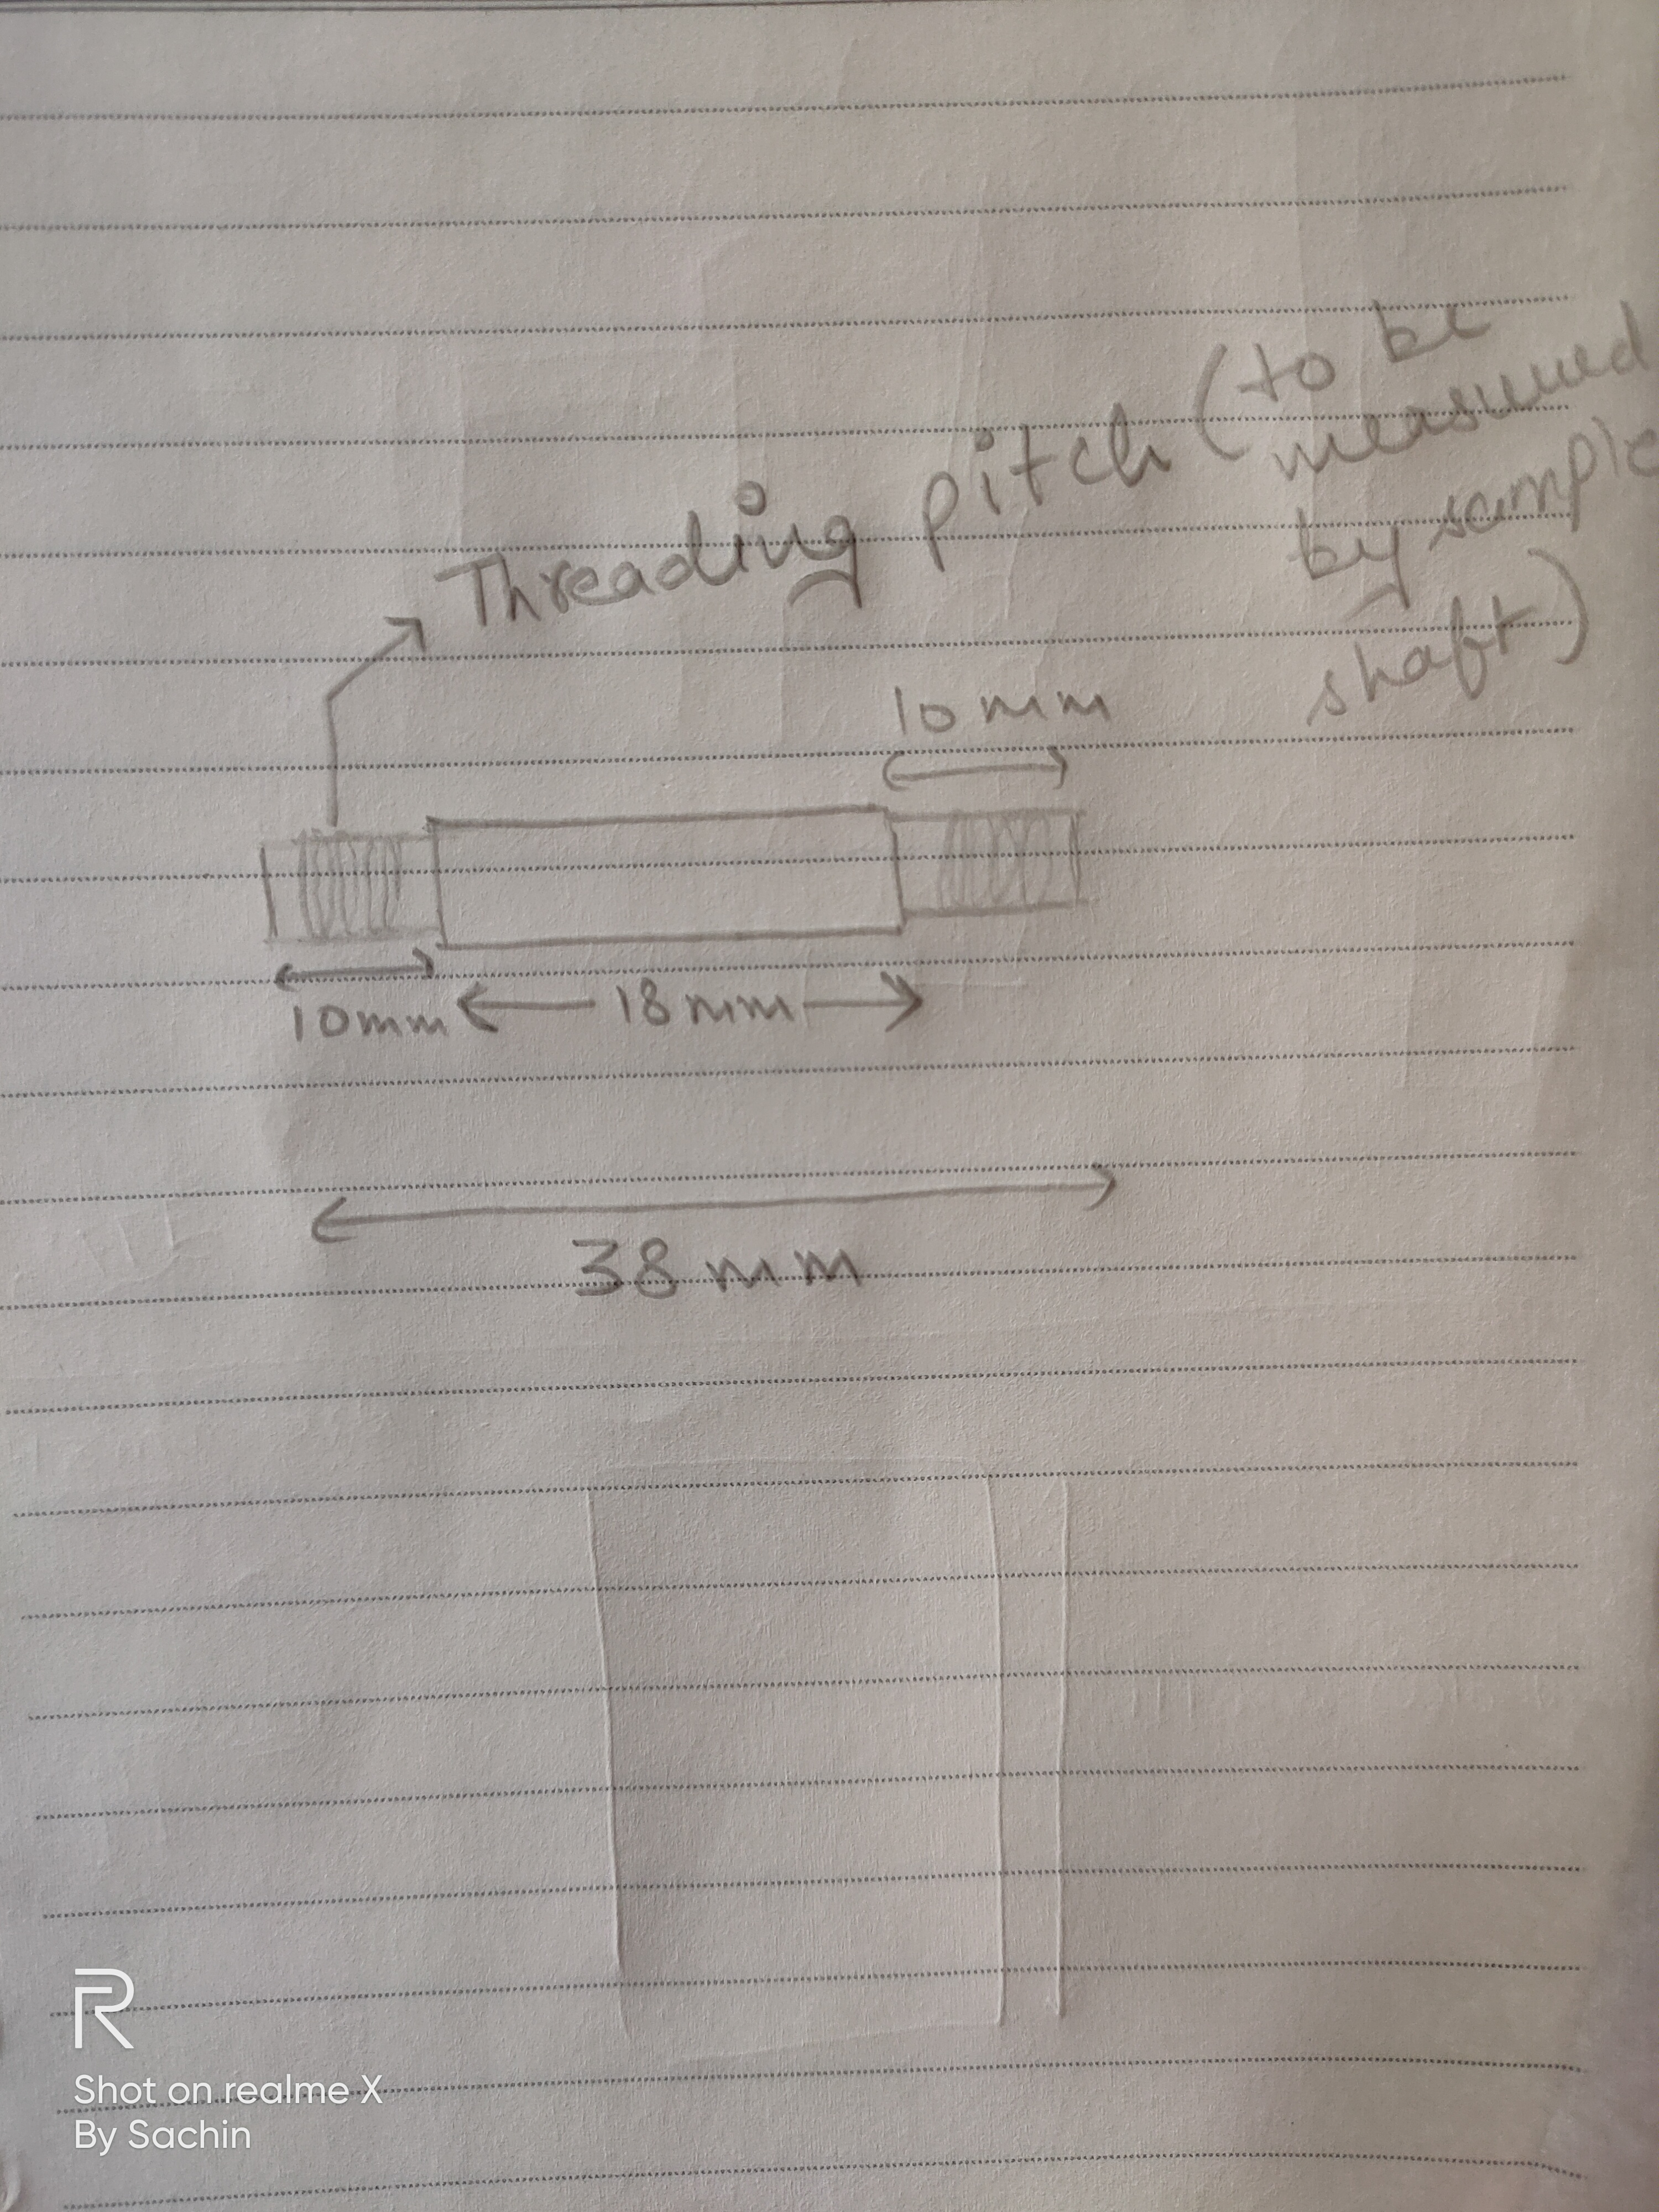 Threading pitch (to be
measured
by sample
shaft)
10 mm
10mm
18mm
38 mm
R
Shot on realme X
By Sachin